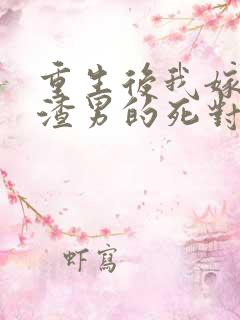 重生後我嫁
渣男的死對
虾寫